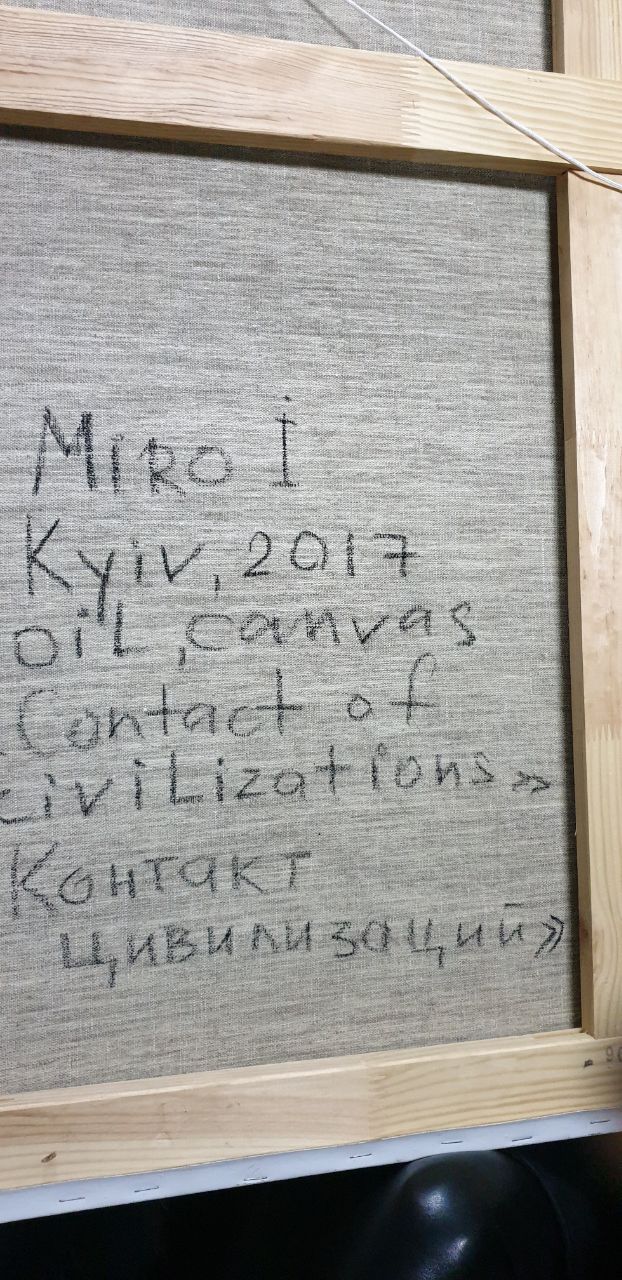 Miro İ
Kyiv, 2017
oil, canvas
Contact of
civilizations»
Контакт
цивилизаций»